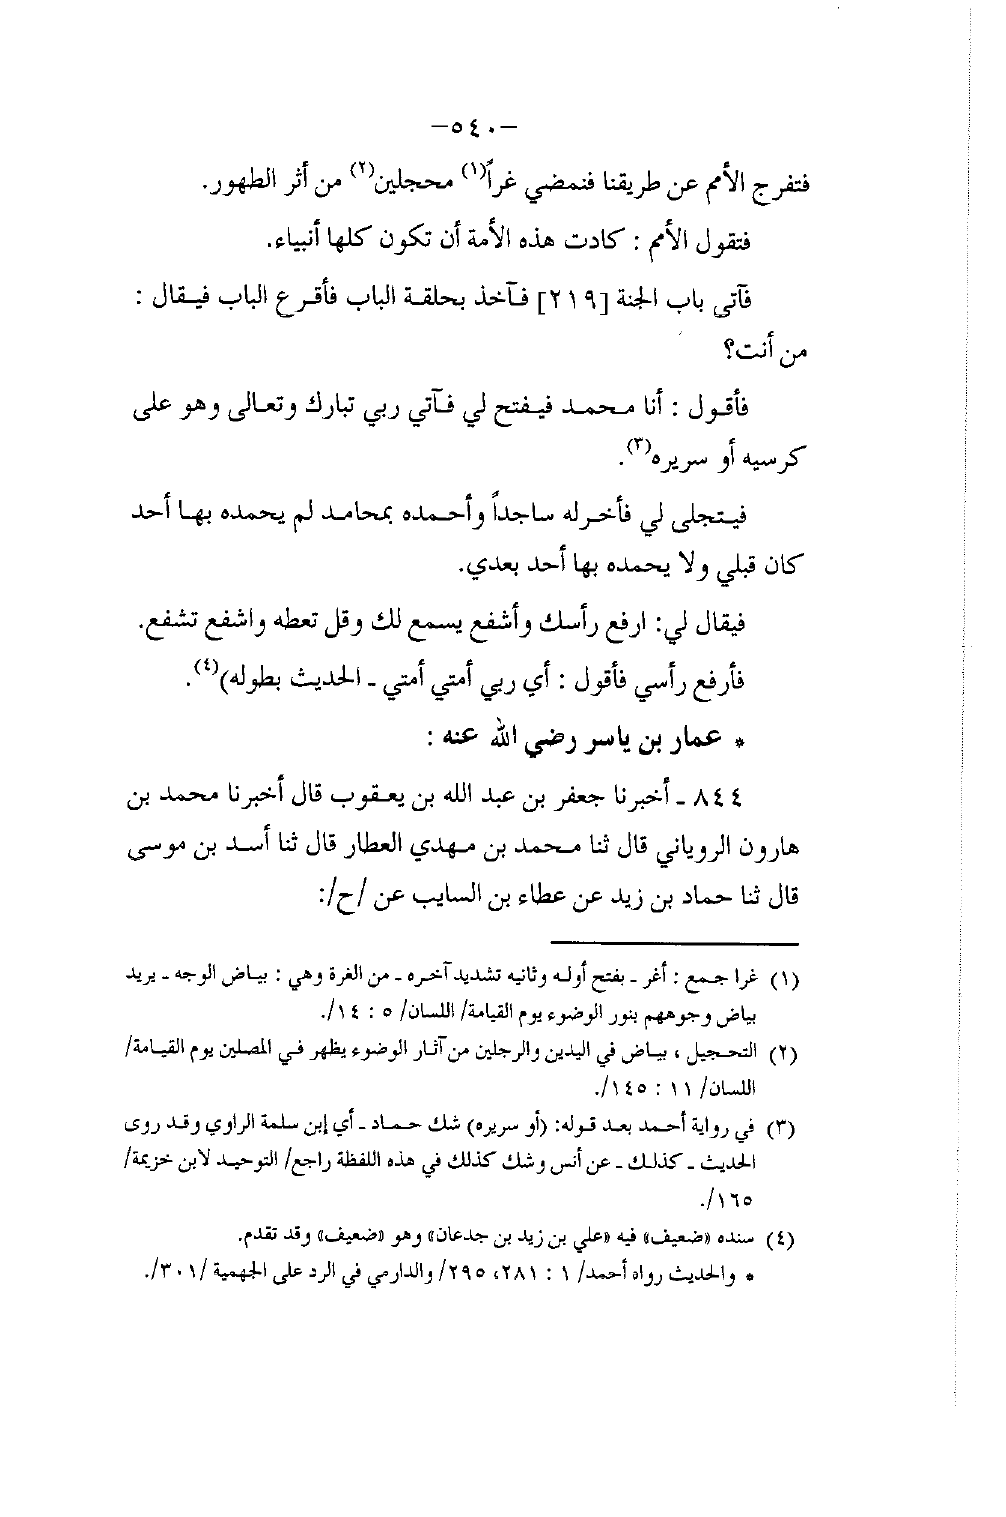 -٥٤٠-
فتفرج الأمم عن طريقنا فنمضي غراً(١) محجلين(٢) من أثر الطهور.
فتقول الأمم : كادت هذه الأمة أن تكون كلها أنبياء.
فآتى باب الجنة [٢١٩] فآخذ بحلقة الباب فأقرع الباب فيقال :
من أنت؟
فأقول : أنا محمد فيفتح لي فآتي ربي تبارك وتعالى وهو على
كرسيه أو سريره(٣).
فيتجلى لي فأخرله ساجداً وأحمده بمحامد لم يحمده بها أحد
كان قبلي ولا يحمده بها أحد بعدي.
فيقال لي: ارفع رأسك وأشفع يسمع لك وقل تعطه واشفع تشفع.
فأرفع رأسي فأقول : أي ربي أمتي أمتي ـ الحديث بطوله)(٤).
* عمار بن ياسر رضي الله عنه :
٨٤٤ ـ أخبرنا جعفر بن عبد الله بن يعقوب قال أخبرنا محمد بن
هارون الروياني قال ثنا محمد بن مهدي العطار قال ثنا أسد بن موسى
قال ثنا حماد بن زيد عن عطاء بن السايب عن /ح/:
(١) غرا جمع : أغر ـ بفتح أوله وثانيه تشديد آخره ـ من الغرة وهي : بياض الوجه ـ يريد
بياض وجوههم بنور الوضوء يوم القيامة/ اللسان/ ٥ : ١٤/.
(٢) التحجيل ، بياض في اليدين والرجلين من آثار الوضوء يظهر في المصلين يوم القيامة/
اللسان/ ١١ : ١٤٥/.
(٣) في رواية أحمد بعد قوله: (أو سريره) شك حماد ـ أي إبن سلمة الراوي وقد روى
الحديث ـ كذلك ـ عن أنس وشك كذلك في هذه اللفظة راجع/ التوحيد لابن خزيمة/
١٦٥/.
(٤) سنده «ضعيف» فيه «علي بن زيد بن جدعان» وهو «ضعيف» وقد تقدم.
* والحديث رواه أحمد/ ١ : ٢٨١، ٢٩٥/ والدارمي في الرد على الجهمية /٣٠١/.